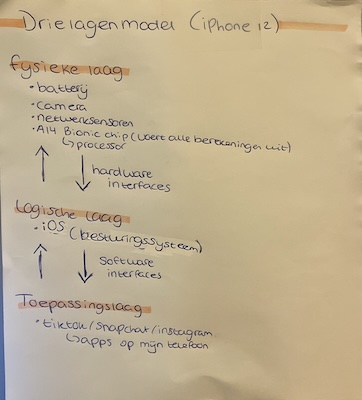 Drielagenmodel (iPhone 12)
Fysieke laag
• battery
• camera
• netwerksensoren
• A14 Bionic chip (voert alle berekeningen uit)
↳processor
↑ ↓ hardware
interfaces
Logische laag
• iOS (besturingssysteem)
↑ ↓ software
interfaces
Toepassingslaag
• tiktok/snapchat/instagram
↳apps op mijn telefoon